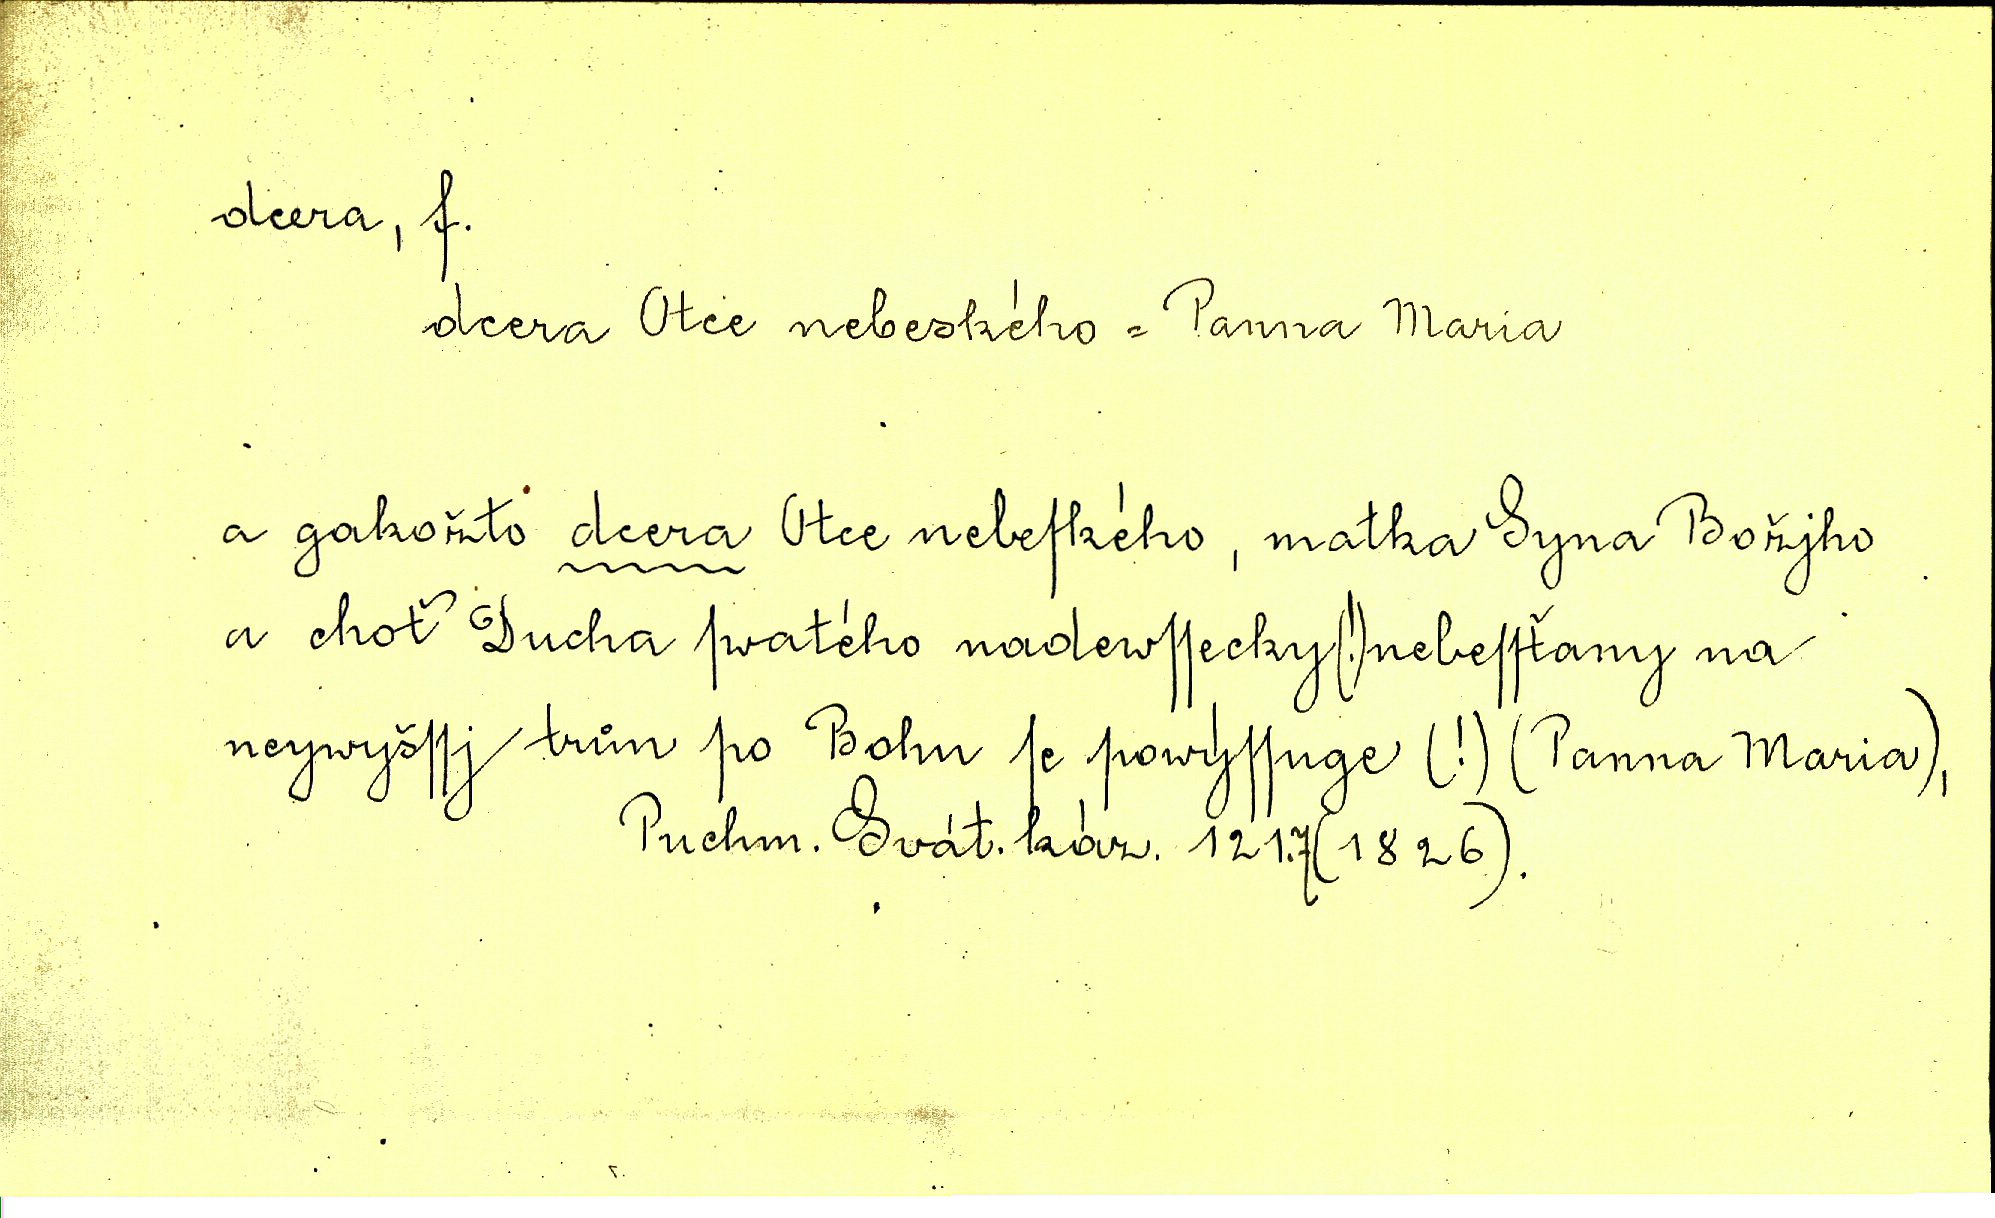 dcera, f.
dcera Otce nebeského = Panna Maria
a gakožto dcera Otce nebeſkého, matka Syna Božjho
a choť Ducha ſwatého nadewſſecky(!)nebeſſťany na
neywyšſſj trůn po Bohu ſe powýſſuge (!) (Panna Maria),
Puchm. Svát. káz. 121.7(1826).